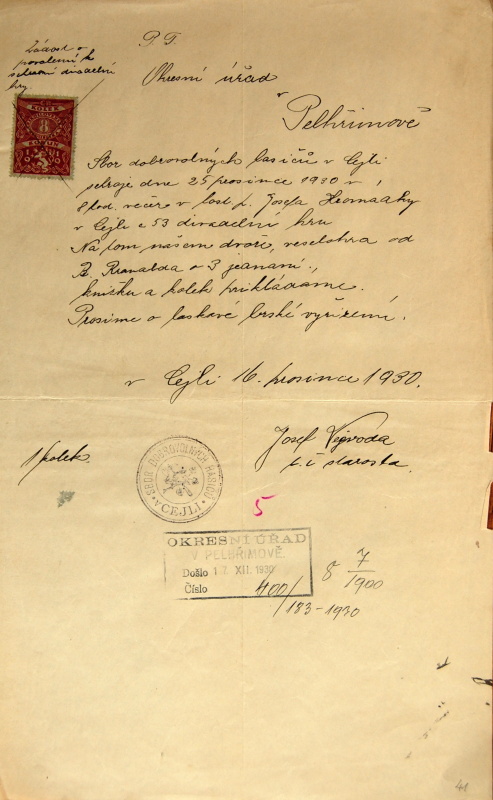 P. T.
Žádost o
povolení k
sehrání divadelní
hry
KOLEK
8
KORUN
Okresní úřad
v
Pelhřimově
Sbor dobrovolných hasičů v Cejli
sehraje dne 25 prosince 1930 v
8 hod. večer v host p. Josefa
v Cejli č 53 divadelní hru
Na tom našem dvoře, veselohra od
o 3 jednání.,
knížku a kolek přikládáme.
Prosíme o laskavé brské vyřízení.
v Cejli 16. prosince 1930.
Josef Vývoda
t. č starosta.
1 kolek.
SBOR DOBROVOLNÝCH HASIČŮ
V CEJLI
5
OKRESNÍ ÚŘAD
V PELHŘIMOVĚ
Došlo 17. XII. 1930
Číslo 400/
183-1930
8 7/1900
41